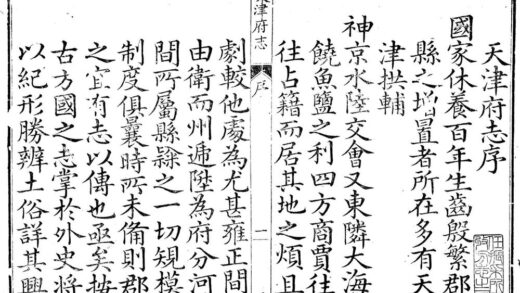 天津府志序
國家休養百年生齒殷繁郡
縣之增置者所在多有天
津拱輔
神京水陸交會又東隣大海
饒魚鹽之利四方商賈往
往占籍而居其地之煩且
津府志
序
一
劇較他處為尤甚雍正間
由衛而州遞陞為府分河
間所屬縣隸之一切䂓模
制度俱曩時所未備則郡
之宜有志以傳也亟矣按
古方國之志掌於外史將
以紀形勝辨土俗詳其興